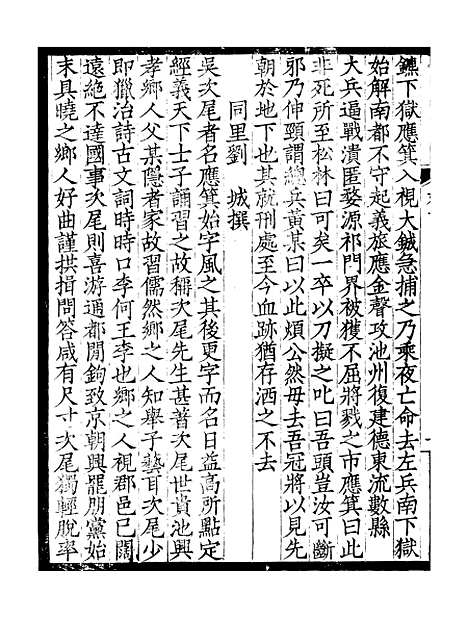 鑣下獄應箕入視大鋮急捕之乃乘夜亡命去左兵南下獄
始解南都不守起義旅應金聲攻池州復建德東流數縣
大兵逼戰潰匿婺源祁門界被獲不屈將戮之市應箕曰此
非死所至松林曰可矣一卒以刀擬之叱曰吾頭豈汝可斷
邪乃伸頸謂總兵黃某曰以此煩公然毋去吾冠將以見先
朝於地下也其就刑處至今血跡猶存洒之不去
同里劉　城撰
吳次尾者名應箕始字風之其後更字而名日益高所點定
經義天下士子誦習之故稱次尾先生甚著次尾世貴池興
孝鄉人父某隱者家故習儒然鄉之人知舉子藝耳次尾少
即獵治詩古文詞時時口李何王李也鄉之人視郡邑已闊
遠絕不達國事次尾則喜游通都閒鉤致京朝興罷朋黨始
末具曉之鄉人好曲謹拱揖問答咸有尺寸次尾獨輕脫率